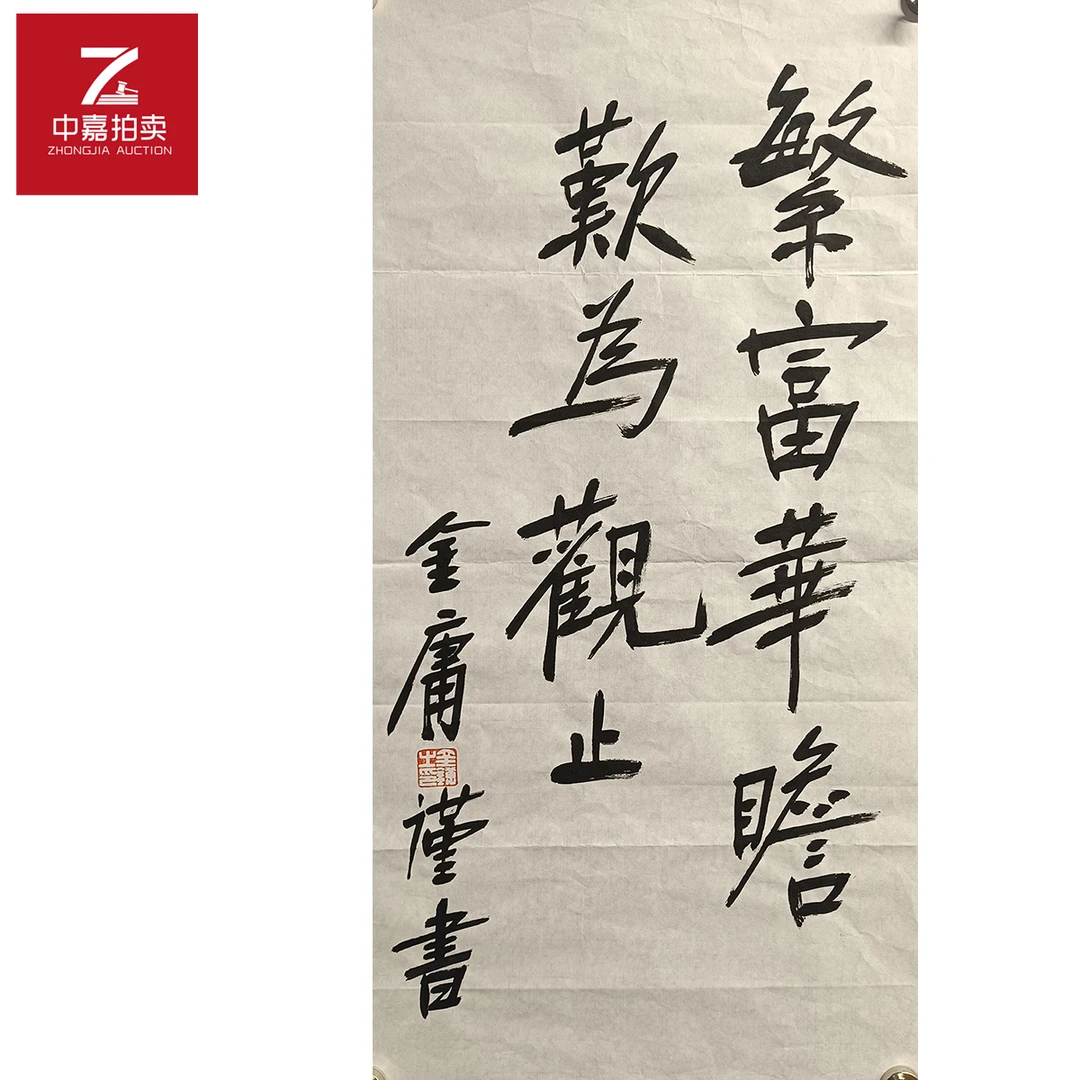 中嘉拍卖
ZHONGJIA AUCTION
繁富華瞻
歎為觀止
金庸謹書